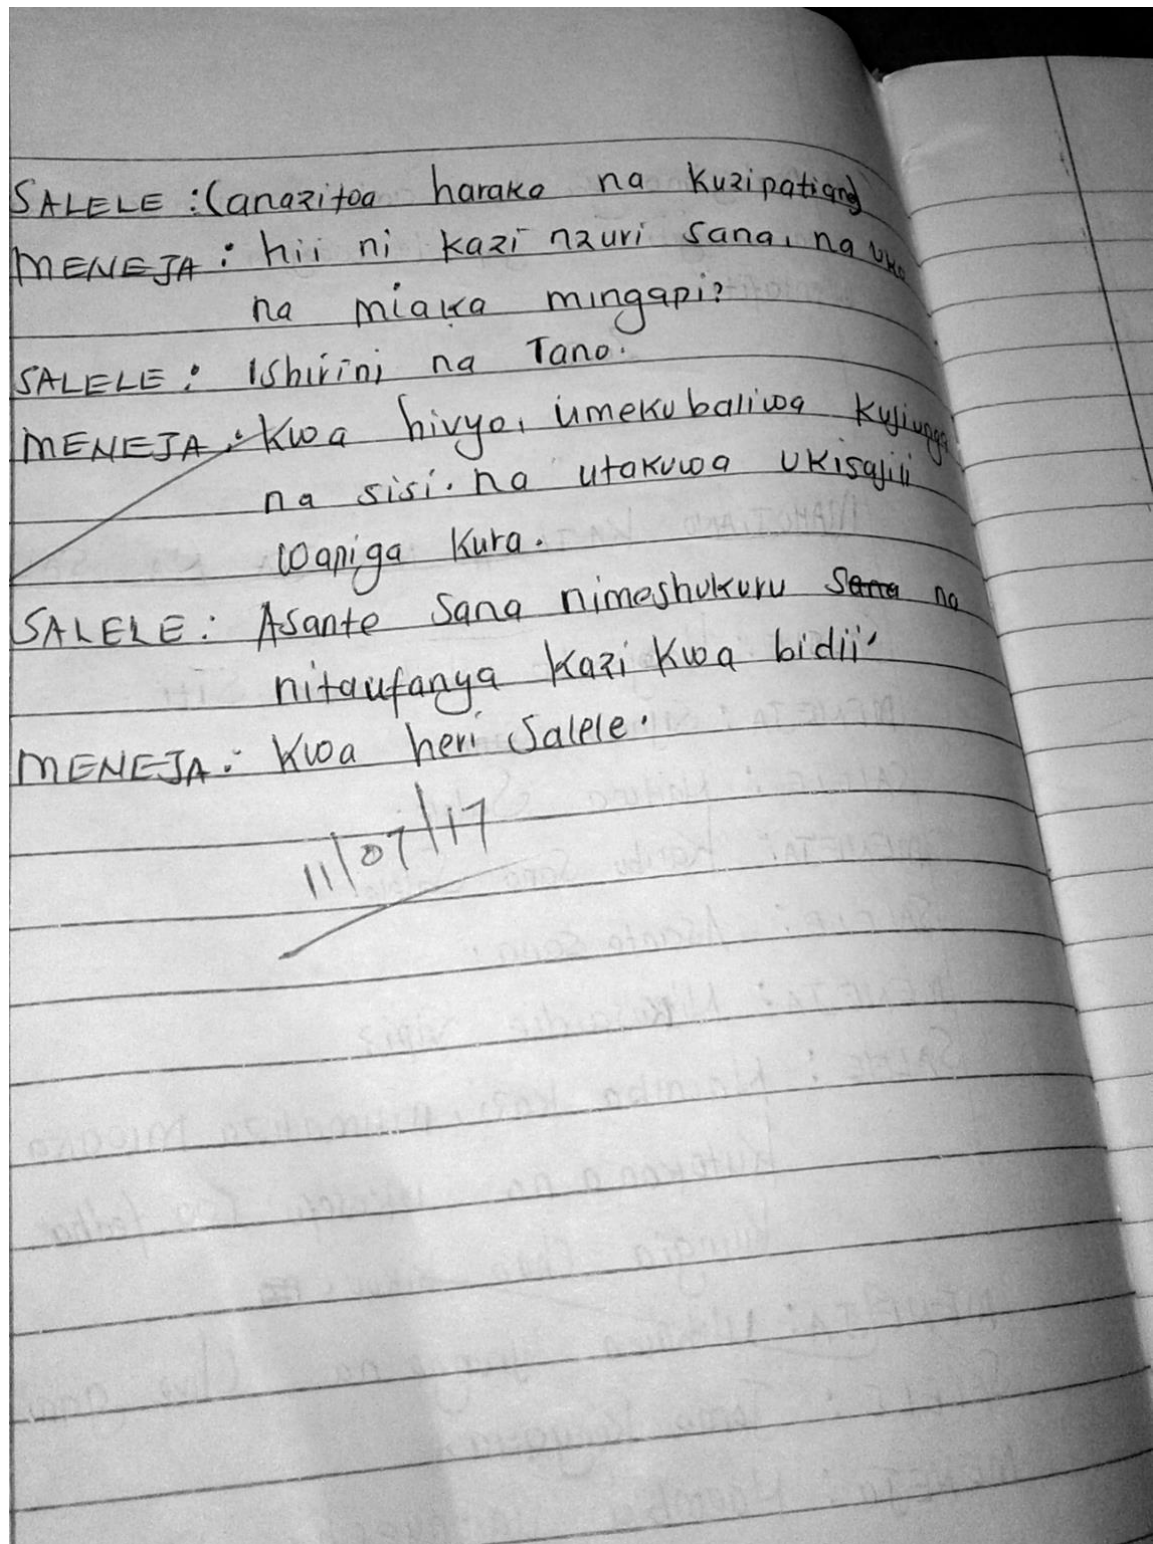 SALELE : (anazitoa haraka na kuzipatiana)
MENEJA : hii ni kazi nzuri sana, na uko
na miaka mingapi?
SALELE : Ishirini na Tano.
MENEJA : Kwa hivyo, umekubaliwa kujiunga
na sisi. na utakuwa ukisajili
wapiga kura.
SALELE : Asante sana nimeshukuru sana na
nitaufanya kazi kwa bidii.
MENEJA : Kwa heri Salele.
11/07/17